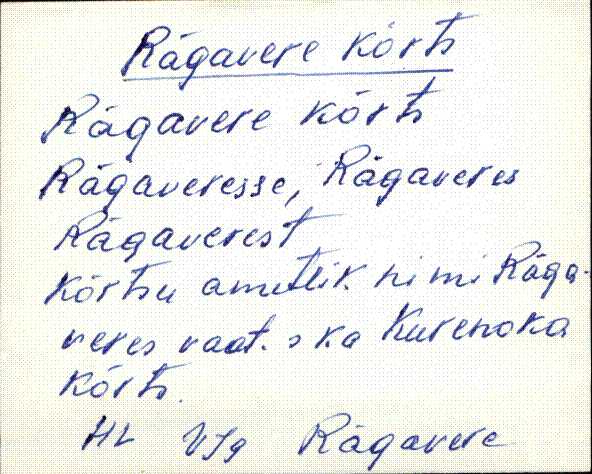 Rägavere kõrts
Rägavere kõrts
Rägaveresse, Rägaveres
Rägaverest
Kõrtsu ametlik nimi Räga-
veres vaat. ka Kurenoka
kõrts.
HL VJg Rägavere